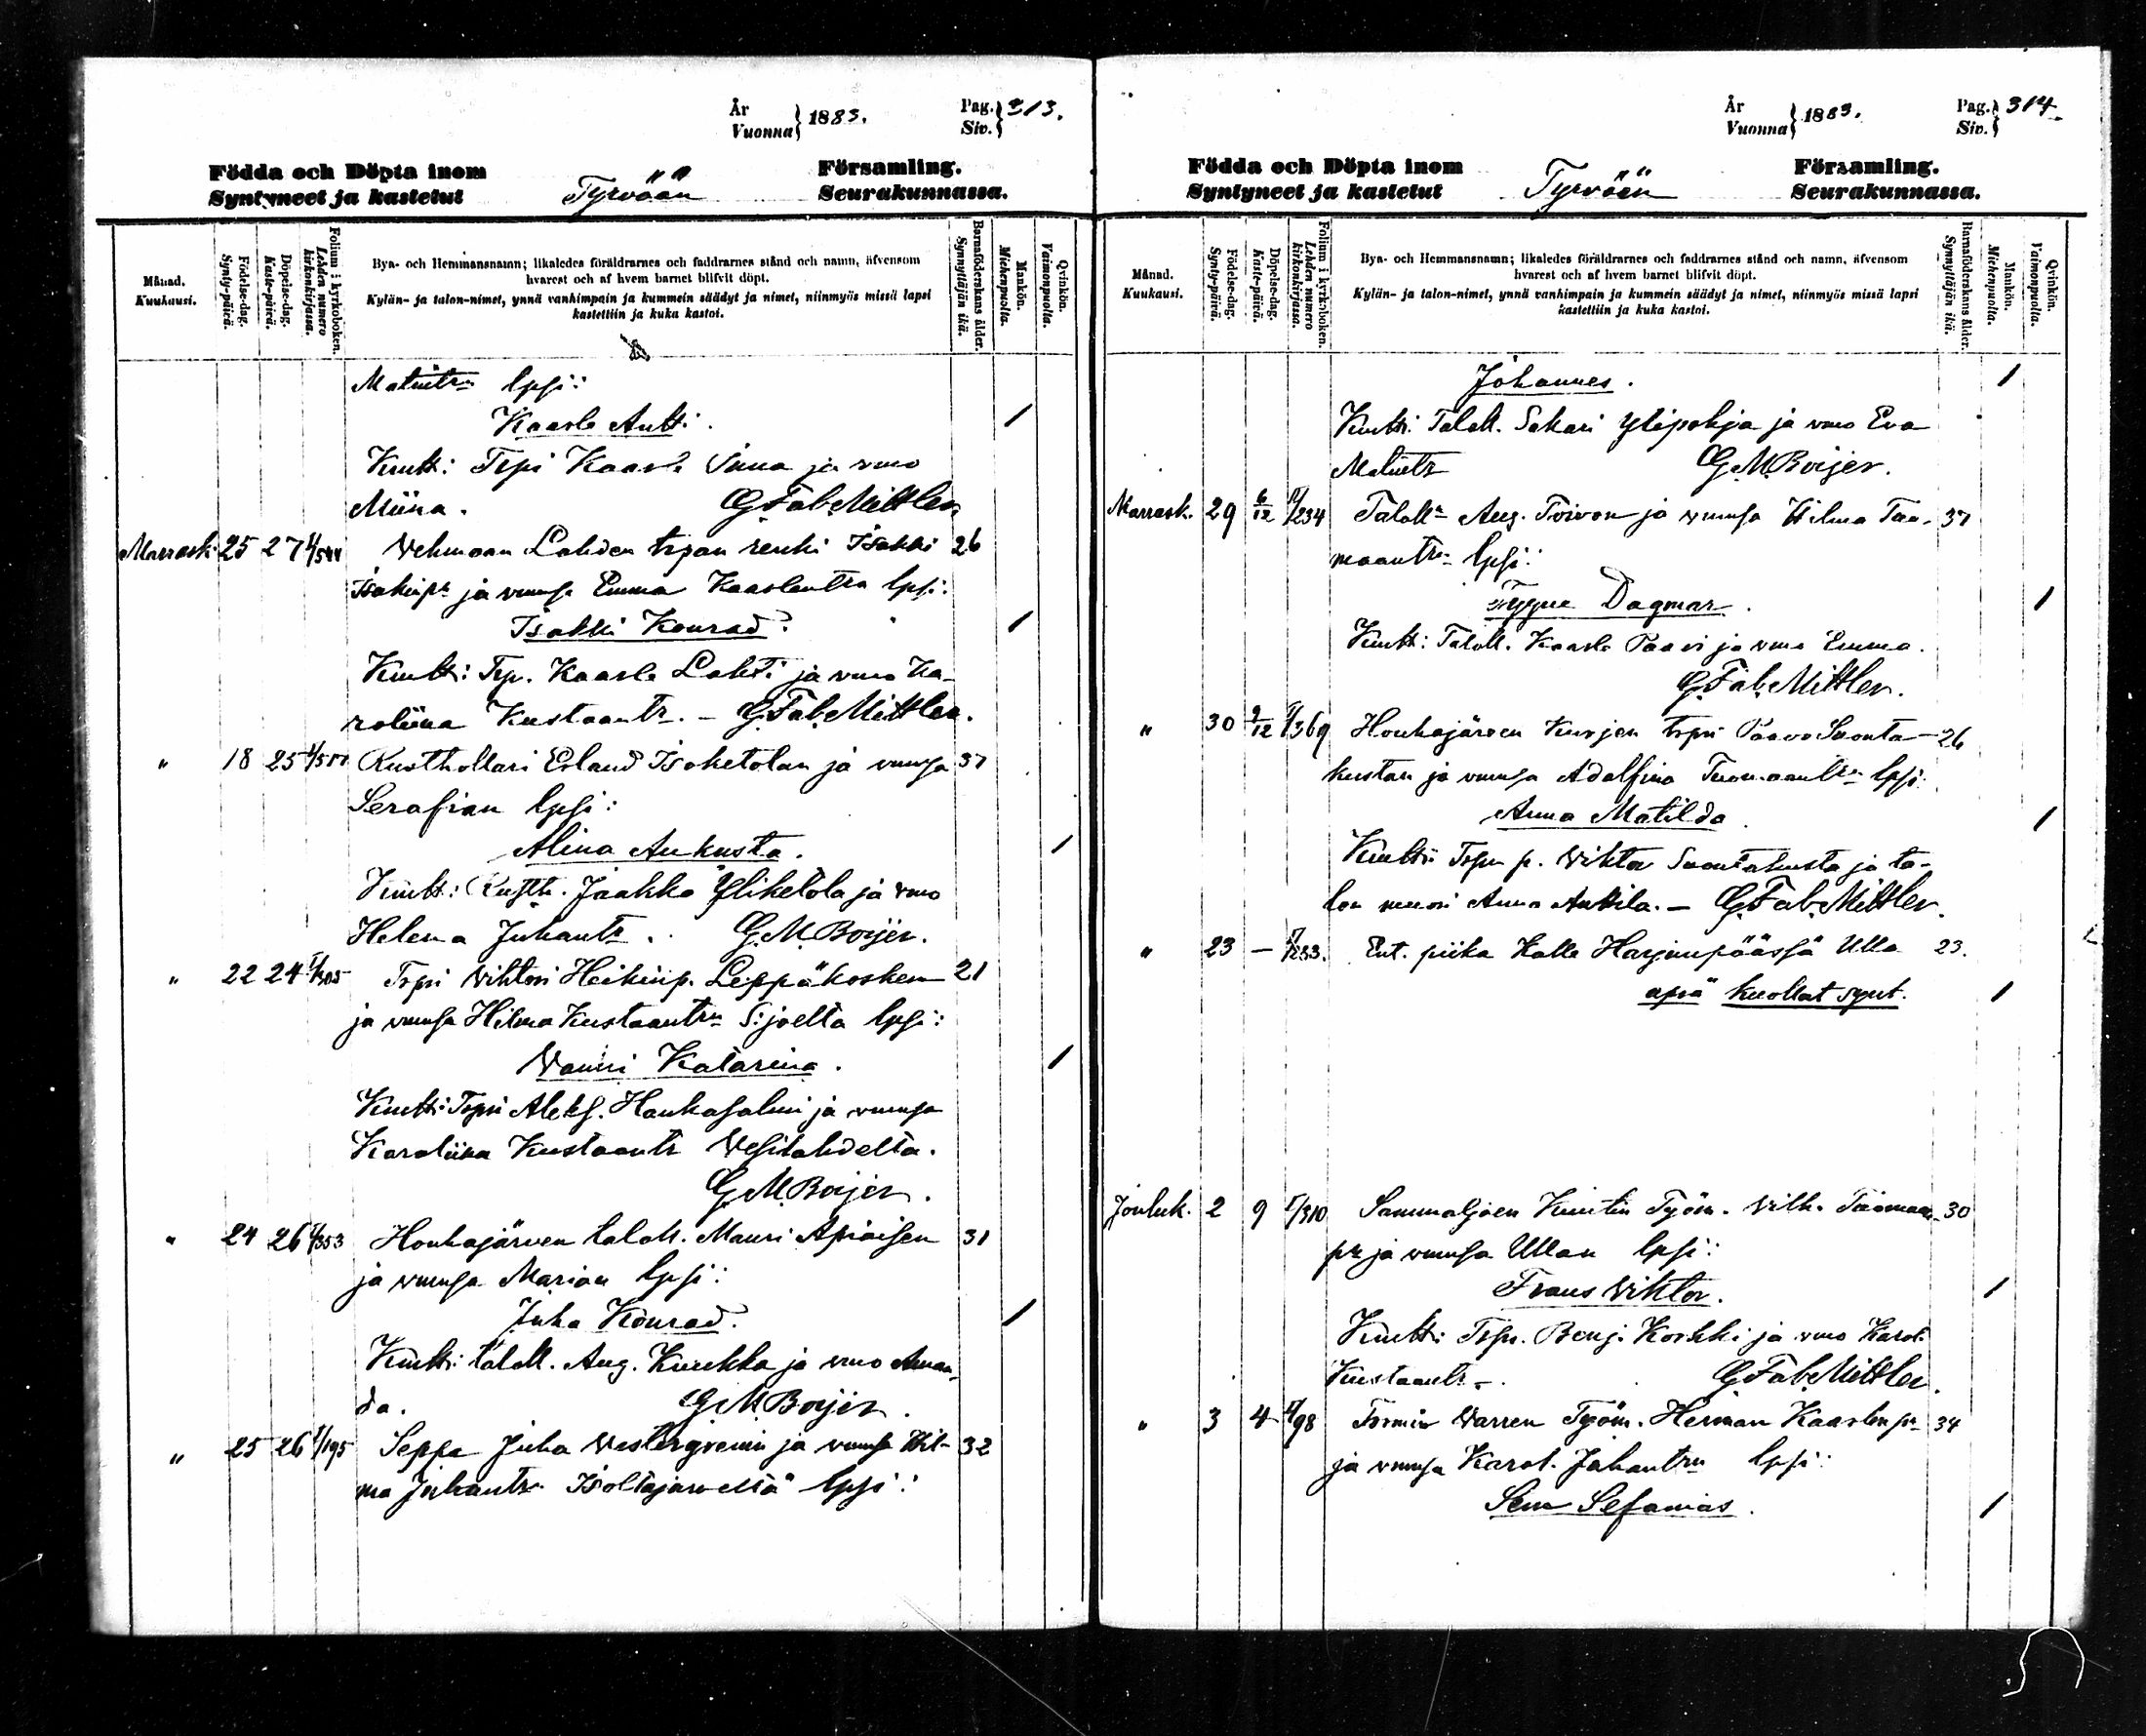 År
Vuonna } 1883.
Pag.
Siv. } 313.
Födda och Döpta inom
Syntyneet ja kastetut
Tyrvään
Församling.
Seurakunnassa.
Månad.
Kuukausi.
Födelse-dag.
Synty-päivä.
Döpelse-dag.
Kaste-päivä.
Folium i kyrkoboken.
Lehden numero kirkonkirjassa.
Bya- och Hemmansnamn; likaledes föräldrarnes och faddrarnes stånd och namn, äfvensom
hvarest och af hvem barnet blifvit döpt.
Kylän- ja talon-nimet, ynnä vanhimpain ja kummein säädyt ja nimet, niinmyös missä lapsi
kastettiin ja kuka kastoi.
Barnaföderskans ålder.
Synnyttäjän ikä.
Mankön.
Miehenpuolia.
Qvinkön.
Vaimonpuolia.
lpsi:
Kaarle Antti. /
Kmtt: Trpi Kaarle ja vmo
Miina. G.Fab.Mittler
Marrask. 25 27 Vehmaan Lahden trpan renki Isakki 26
Isakinp. ja vmnsa Emma Kaarlentra lpsi:
Isakki Konrad. /
Kmtt: Trp. Kaarle Lahti ja vmo Ka-
roliina Kustaantr. – G.Fab.Mittler.
" 18 25 Rusthollari Erland Isoketolan ja vmnsa 37
Serafian lpsi:
Alina Aukusta. /
Kmtt: Rusth. Jaakko Yliketola ja vmo
Helena Juhantr. G.M.Boijer.
" 22 24 Trpri Vihtori Heikinp. Leppäkosken 21
ja vmnsa Hilma Kustaantrn S:joelta lpsi:
Wanni Katarina. /
Kmtt: Trpri Aleks. Haukasalmi ja vmnsa
Karoliina Kustaantr Vesilahdelta.
G.M.Boijer.
" 24 26 I/353 Houhajärven taloll. Mauri Apiaisen 31
ja vmnsa Marian lpsi:
Juha Konrad. /
Kmtt: taloll. Aug. Kuukka ja vmo Aman-
da. G.M.Boijer.
" 25 26 I/195 Seppä Juha Westergrenin ja vmnsa Hil- 32
ma Juhantr. lpsi:
År
Vuonna } 1883.
Pag.
Siv. } 314.
Födda och Döpta inom
Syntyneet ja kastetut
Tyrvään
Församling.
Seurakunnassa.
Månad.
Kuukausi.
Födelse-dag.
Synty-päivä.
Döpelse-dag.
Kaste-päivä.
Folium i kyrkoboken.
Lehden numero kirkonkirjassa.
Bya- och Hemmansnamn; likaledes föräldrarnes och faddrarnes stånd och namn, äfvensom
hvarest och af hvem barnet blifvit döpt.
Kylän- ja talon-nimet, ynnä vanhimpain ja kummein säädyt ja nimet, niinmyös missä lapsi
kastettiin ja kuka kastoi.
Barnaföderskans ålder.
Synnyttäjän ikä.
Mankön.
Miehenpuolia.
Qvinkön.
Vaimonpuolia.
Johannes. /
Kmtt: Taloll. Sakari Ylipohja ja vmo Eva
Matintr G.M.Boijer.
Marrask. 29 6/12 Taloll. Aug. Toivon ja vmnsa Hilma Tuo- 37
maantrn lpsi:
Tyyne Dagmar. /
Kmtt: Taloll. Kaarle Paavi ja vmo Emma.
G.Fab.Mittler.
" 30 9/12 Houhajärven Kurjen trpri Paavo Suonta- 26
kustan ja vmnsa Adolfina Tuomaantrn lpsi:
Anna Matilda. /
Kmtt: Trpn p. Viktor Suontakusta ja ta-
lon muori Anna Anttila. – G.Fab.Mittler.
" 23 – Ent. piika Kalle Harjunpäässä Ulla 23.
apiä kuollut synt. /
Jouluk. 2 9 I/310 Sammaljoen Kuntin Työm. Vilh. Tuomaan- 30
pr ja vmnsa Ullan lpsi:
Frans Viktor. /
Kmtt: Trpr. Benj. Korkki ja vmo Karol.
Kustaantr. G.Fab.Mittler.
" 3 4 Tormin Warren Työm. Herman Kaarlenpr 34
ja vmnsa Karol. Juhantrn lpsi:
Sem Sefanias. /